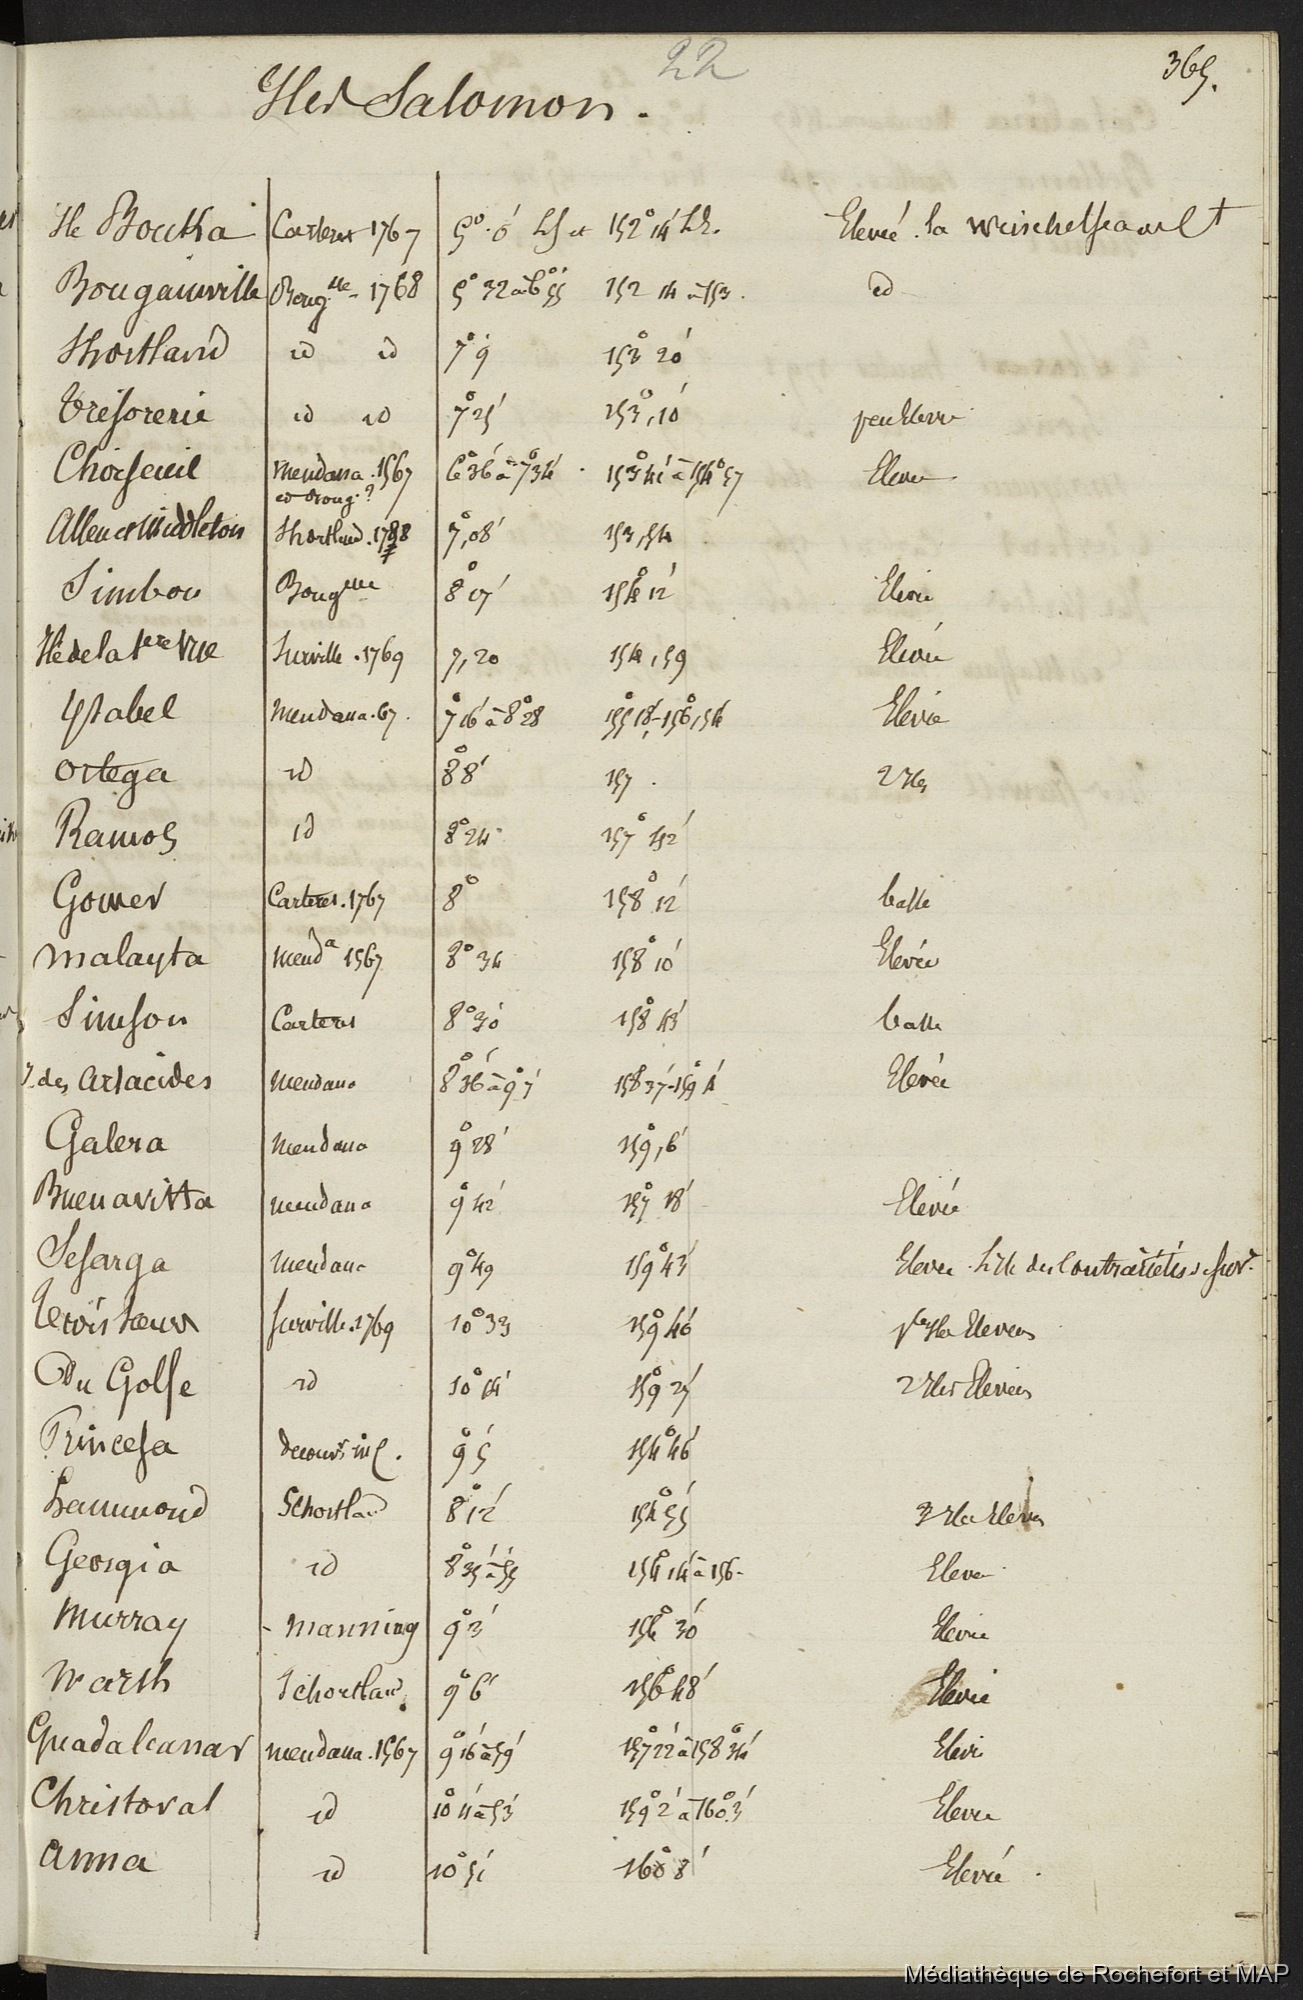 22
365.
Iles Salomon.
Ile Boutka Carteret 1767 5°.6' 152°14' Elevée. la
Bougainville Boug.lle 1768 5°32 à 6°55' 152 14 à 153. id
Shortland id id 7°9' 153°20'
Trésorerie id id 7°25' 153°,10' peu Elevée
Choiseuil Mendana.1567 6°36' à 7°34' 153°41' à 154°57 Elevée
id Boug.?
Allen et Middleton Shortland.1788 7°,08' 153,54
Simbou Boug.lle 8°17' 154°12' Elevée
Ile de la 1ere Vue Surville.1769 7,20 154,59 Elevée
Ysabel Mendana.67. 7°16' à 8°28 155°18'-156°,54' Elevée
Ortega id 8°8' 157. 2 Iles
Ramos id 8°24' 157°42'
Gower Carteret.1767 8° 158°12' basse
Malayta Mend.a 1567 8°34 158°10' Elevée
Simson Carteret 8°30' 158°43' basse
I. des Arsacides Mendana 8°36' à 9°7' 158 37'-159°4' Elevée
Galera Mendana 9°28' 159°,6'
Buenavista Mendana 9°42' 157°18' Elevée
Sesarga Mendana 9°49 159°43' Elevée. L'ile des Contrariétés de Surv.
Trois Soeurs Surville.1769 10°33 159°46' Elevées
Du Golfe id 10°14' 159°27' 2 Iles Elevées
Princesa 9°5' 154°46'
Hammond Schortland 8°12' 154°55' 3 Iles Elevées
Georgia id 8°35' à 55' 154°14' à 156- Elevée
Murray - Manning 9°3' 156°30' Elevée
Marsh Schortland. 9°6' 156°48' Elevée
Guadalcanar Mendana.1567 9°16' à 59' 157°22' à 158°34' Elevée
Christoval id 10°11' à 53' 159°2' à 160°.3' Elevée
Anna id 10°51' 160°8' Elevée.
Médiathèque de Rochefort et MAP